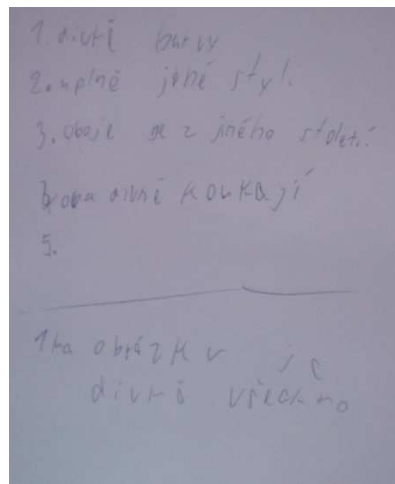 1. divné barvy
2. uplně jiné styl.
3. oboje je z jiného století
4. oba divně koukají
5.
1. na obrázku je
divné všechno